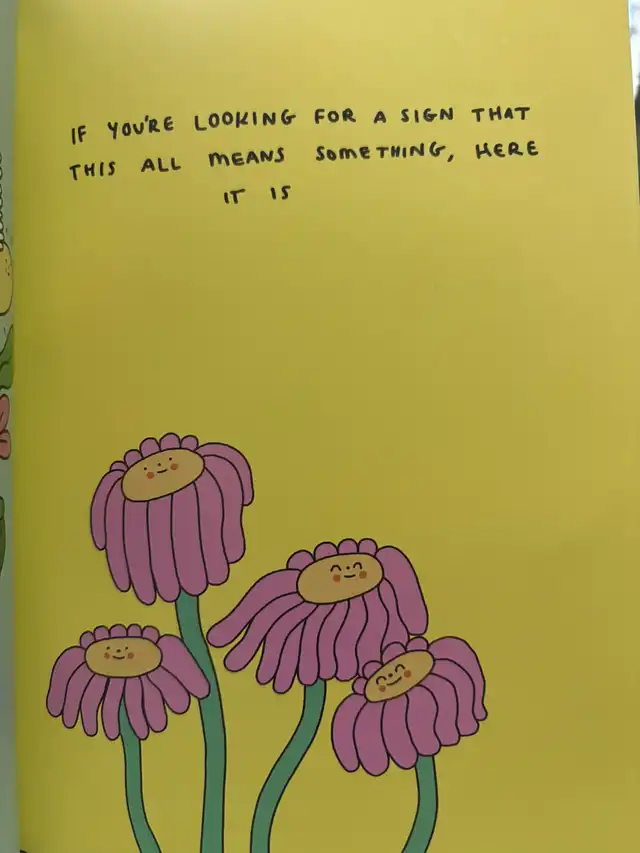 IF YOU'RE LOOKING FOR A SIGN THAT
THIS ALL MEANS SOMETHING, HERE
IT IS